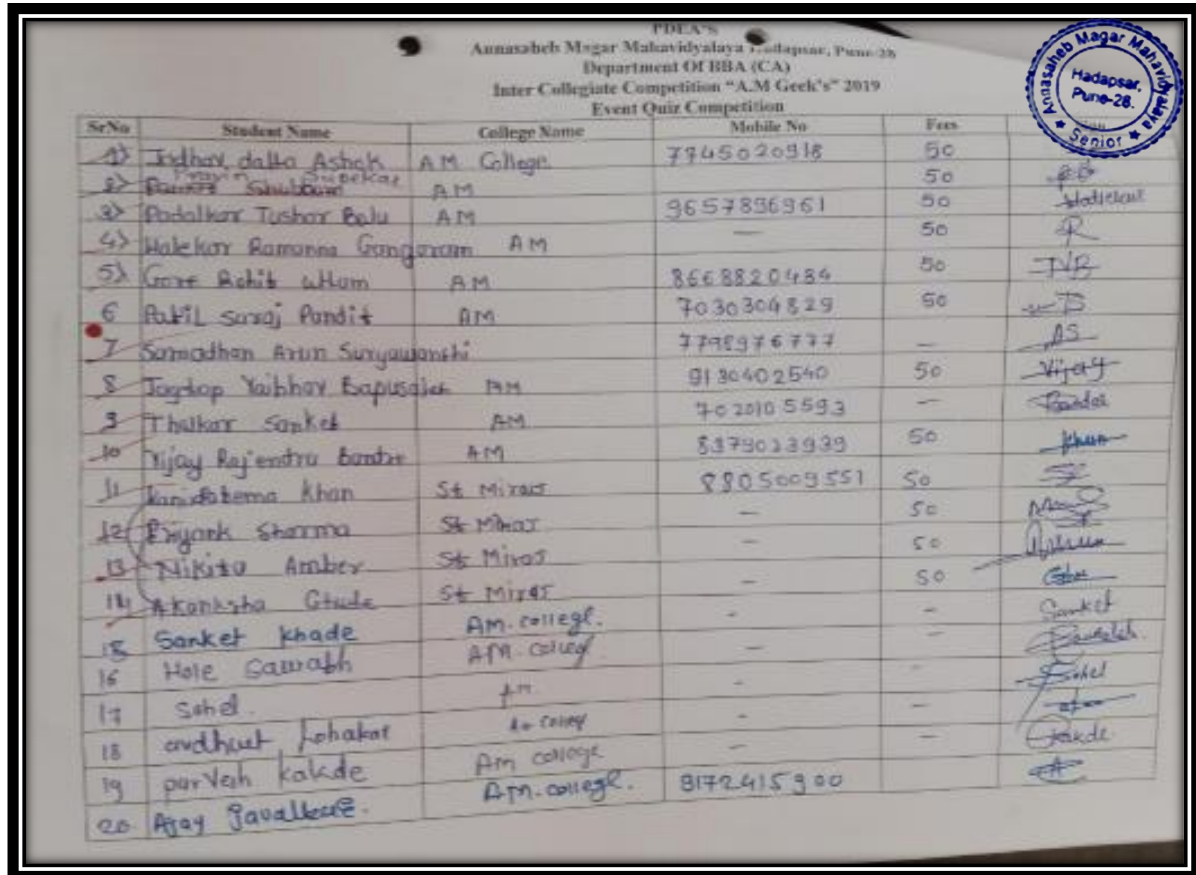 PDEA's
Annasaheb Magar Mahavidyalaya Hadapsar, Pune-28
Department Of BBA (CA)
Inter Collegiate Competition "A.M Geek's" 2019
Event Quiz Competition
Annasaheb Magar Mahavidyalaya Hadapsar, Pune-28. Senior
SrNo Student Name College Name Mobile No Fees
1) Jadhav datta Ashok AM College 7745020918 50
Pravin Supekar
2) Shubham AM 50
3) Padalkar Tushar Balu AM 9657896961 50
4) Halekar Ramanna Gangaram AM — 50
5) Gore Rohit AM 8668820484 50
6 Patil Suraj Pandit AM 7030304829 50
7 Samadhan Arun Suryawanshi 7798976777 — AS
8 Jagtap Vaibhav Bapusaheb AM 9130402540 50 Vijay
9 Thalkar Sanket AM 7020105593 —
10 Vijay Rajendra AM 8379023939 50
11 Khan St Miras 8805009551 50
12 Priyank Sharma St Miras — 50
13 Nikita Amber St Miras — 50
14 Akanksha St Miras — 50
15 Sanket Khade AM. college. - - Sanket
16 Hole Saurabh AM. - -
17 Sohel. - Sohel
18 Lohakar - -
19 parvesh kakde Am college - - Kakde
20 Ajay AM. college. 9172415900